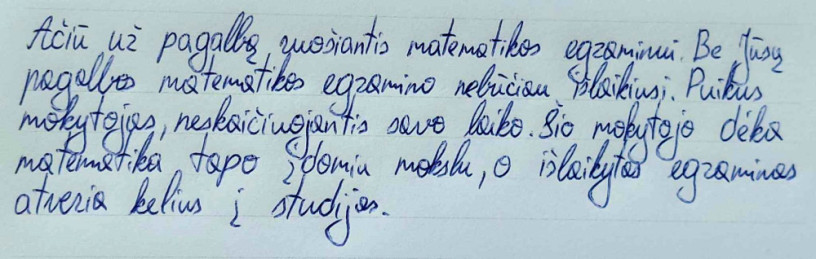 Ačiū už pagalbą ruošiantis matematikos egzaminui. Be Jūsų
pagalbos matematikos egzamino nebūčiau išlaikiusi. Puikus
mokytojas, neskaičiuojantis savo laiko. Šio mokytojo dėka
matematika tapo įdomiu mokslu, o išlaikytas egzaminas
atveria kelius į studijas.